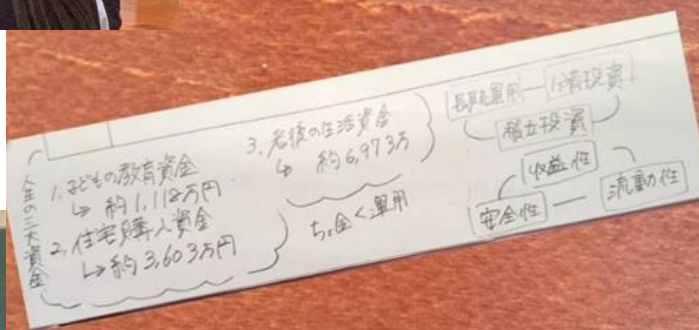 人生の三大資金
1. 子どもの教育資金
↳ 約1,112万円
2. 住宅購入資金
↳ 約3,603万円
3. 老後の生活資金
↳ 約6,973万
ちょ金<運用
長期運用 分散投資
積立投資
収益性
安全性 流動性